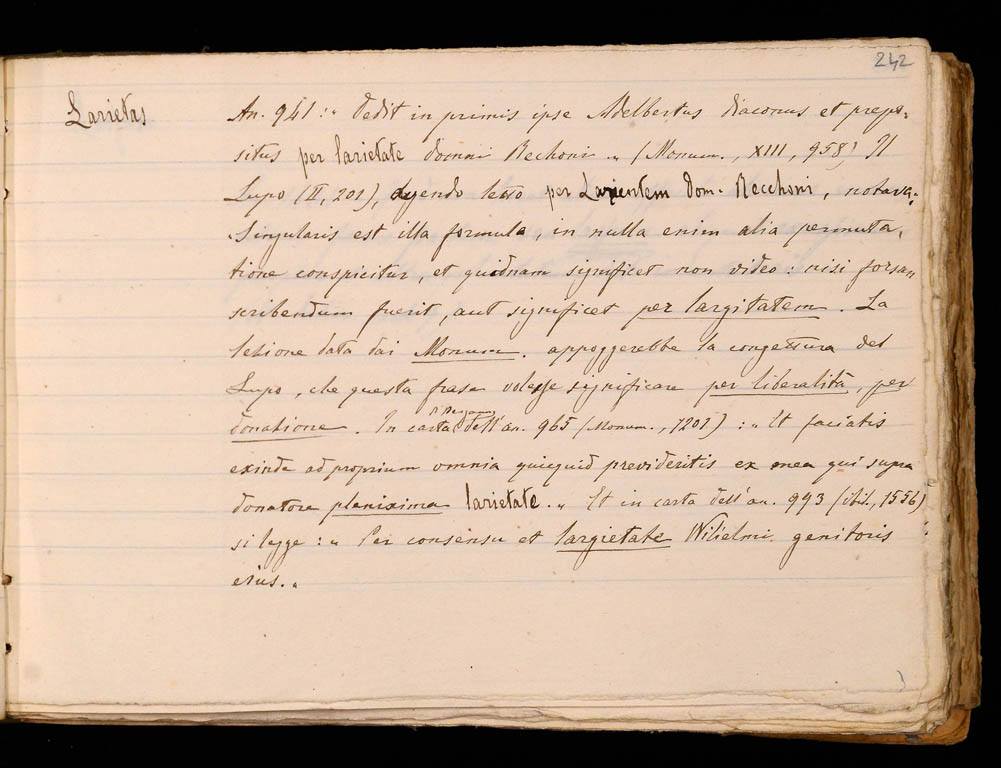 242
Larietas
An. 941: „ Dedit in primis ipse Adelbertus diaconus et prepo-
situs per larietate domni Rechoni „ (Monum., XIII, 958) Il
Lupo (II, 201), avendo letto per Larientem dom. Recchoni, notava:
„Singularis est illa formula, in nulla enim alia permuta,
tione conspicitur, et quidnam significet non video: nisi forsan
scribendum fuerit, aut significet per largitatem. La
lezione data dai Monum. appoggerebbe la congettura del
Lupo, che questa frase volesse significare per liberalità, per
donatione. In carta dell'an. 965 (Monum., 1201): „ Et faciatis
exinde ad proprium omnia quicquid previderitis ex mea qui supra
donatore plenixima larietate. „ Et in carta dell'an. 993 (ibid., 1556)
si legge: „ Per consensu et largietate Wilielmi genitoris
eius. „